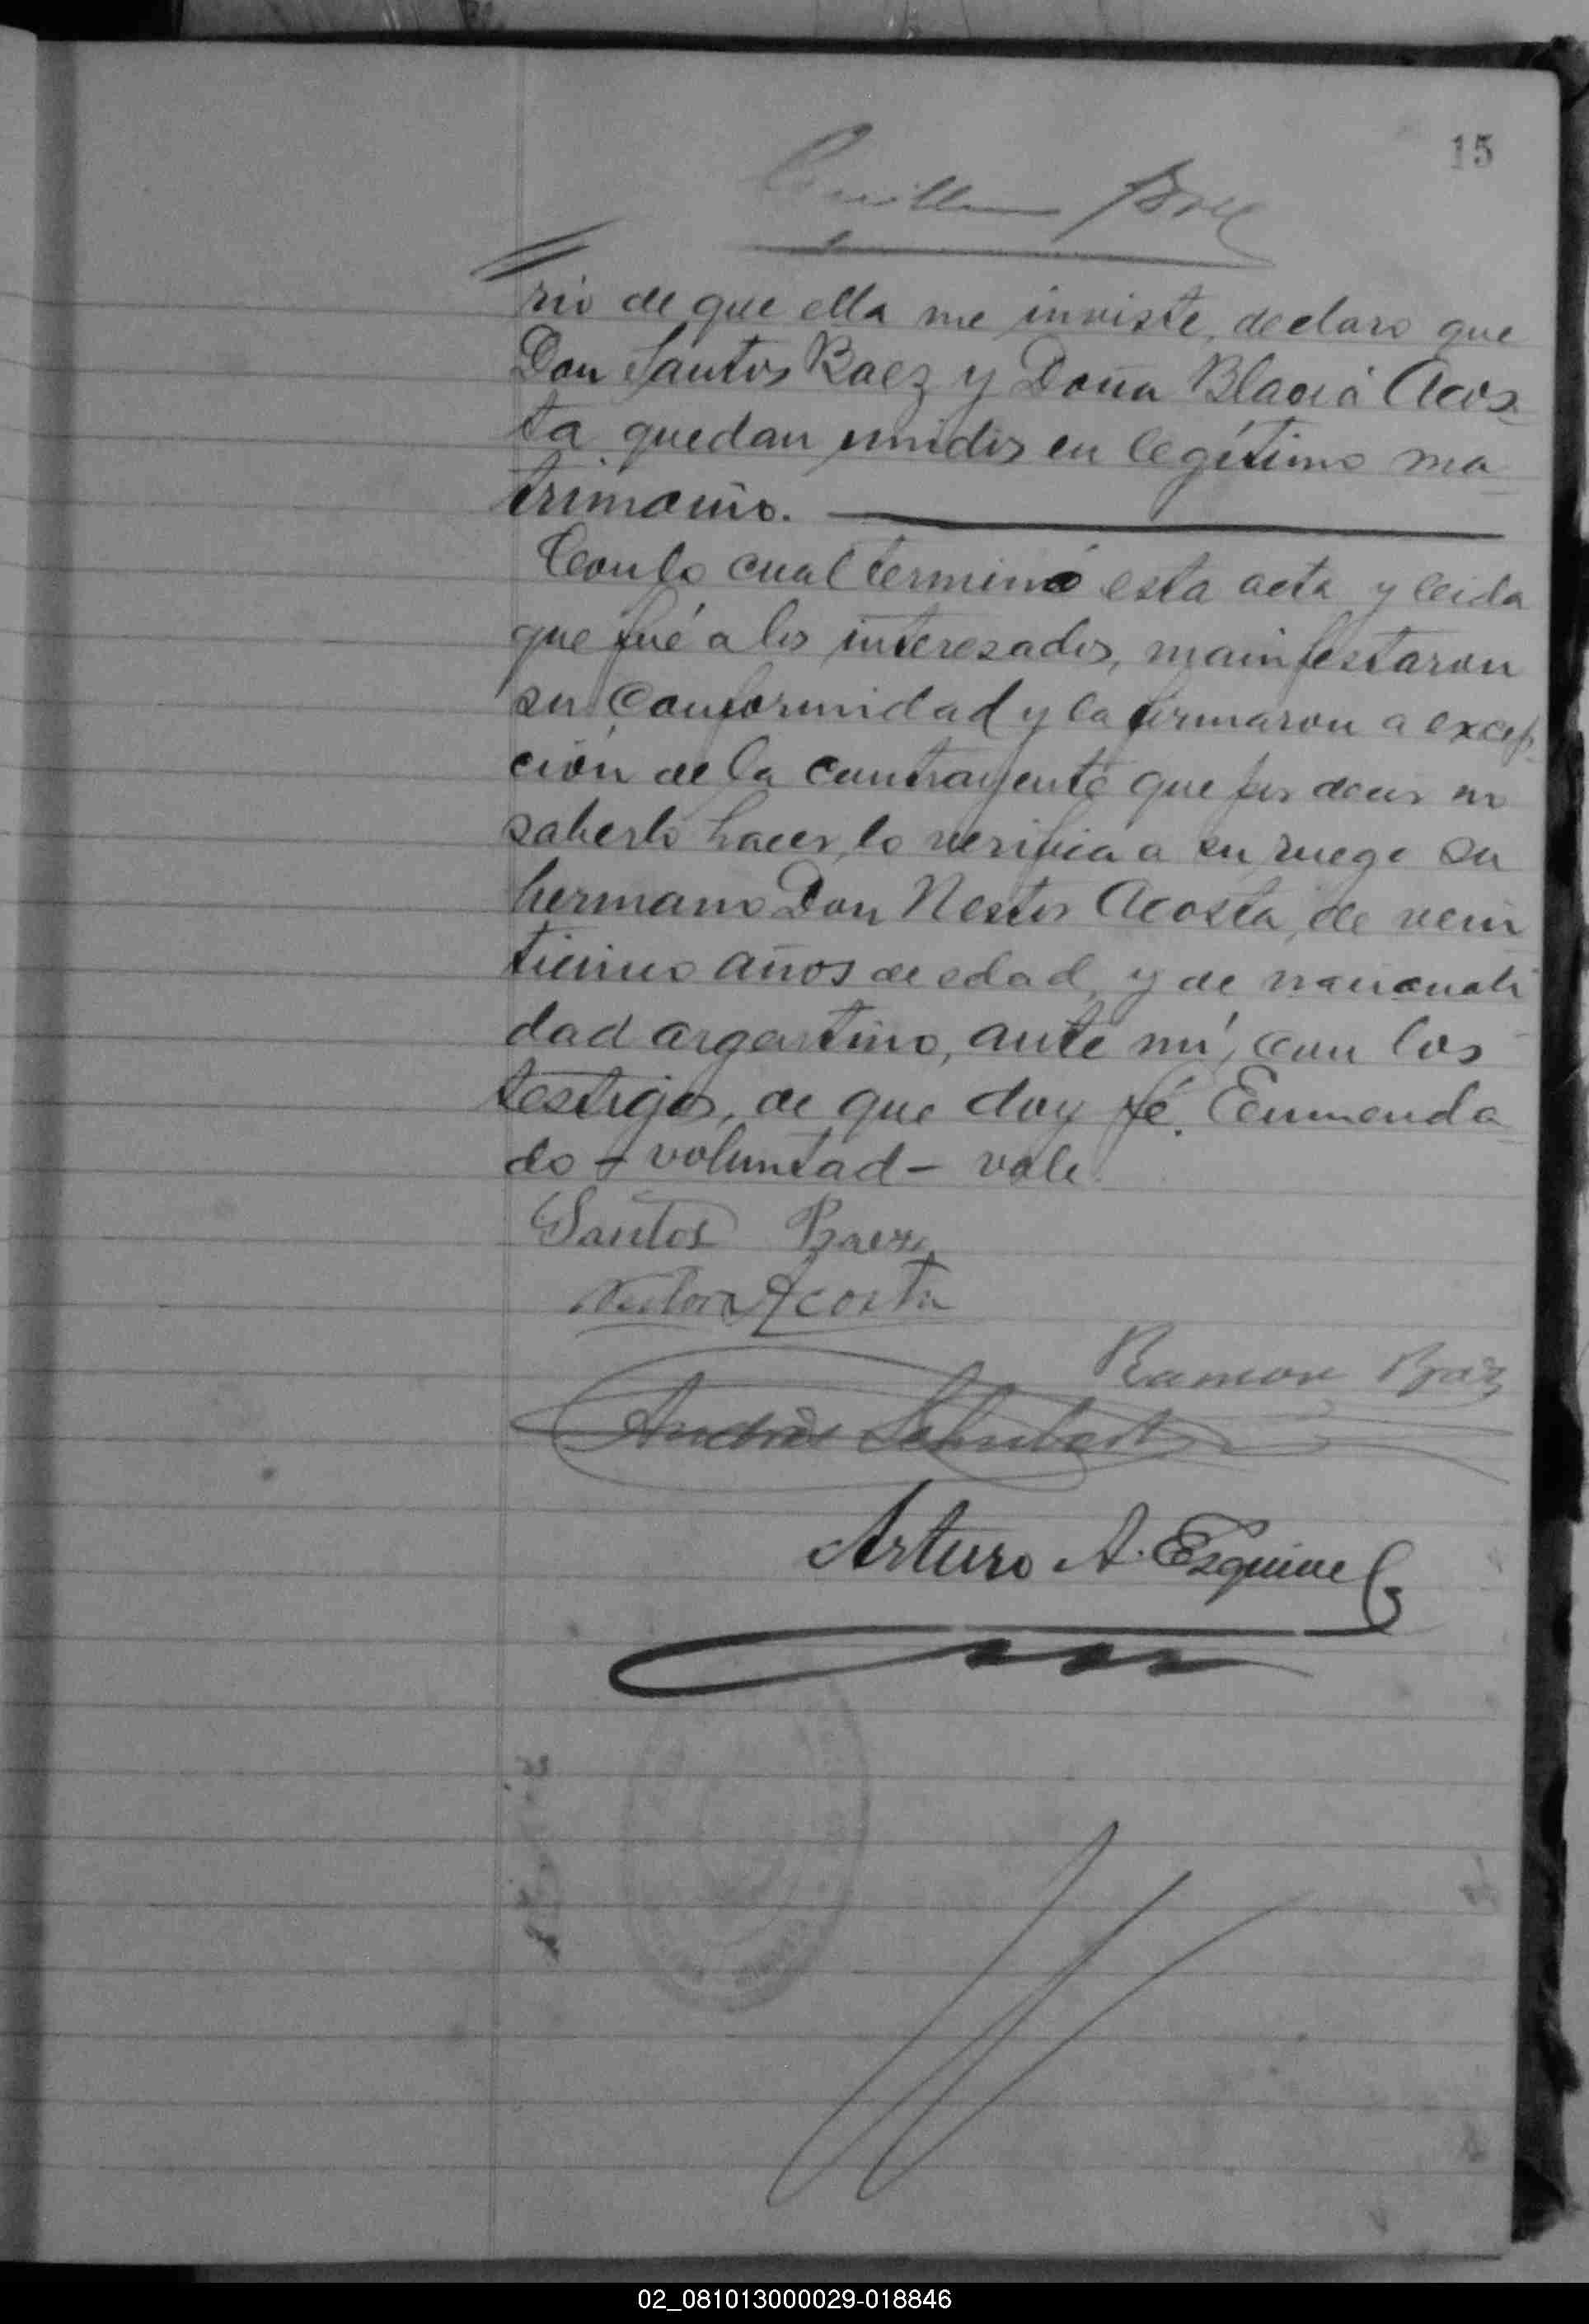 15
rio de que ella me inviste, declaro que
Don Santos Baez y Doña Blacia Acos-
ta quedan unidos en legítimo ma-
trimonio.
Con lo cual terminó esta acta y leida
que fué a los interesados, mainfestaron
su conformidad y la firmaron a excep-
ción de la contrayente que por decir no
saberlo hacer, lo verifica a su ruego su
hermano Don Nestor Acosta, de vein
ticinco años de edad, y de nacionali
dad argentino, ante mí, con los
testigos, de que doy fé. Enmenda-
do - voluntad - vale
Santos Baez
Nestor Acosta
Ramon Baez
Andrés Schubert
Arturo A. Esquivel
02_081013000029-018846